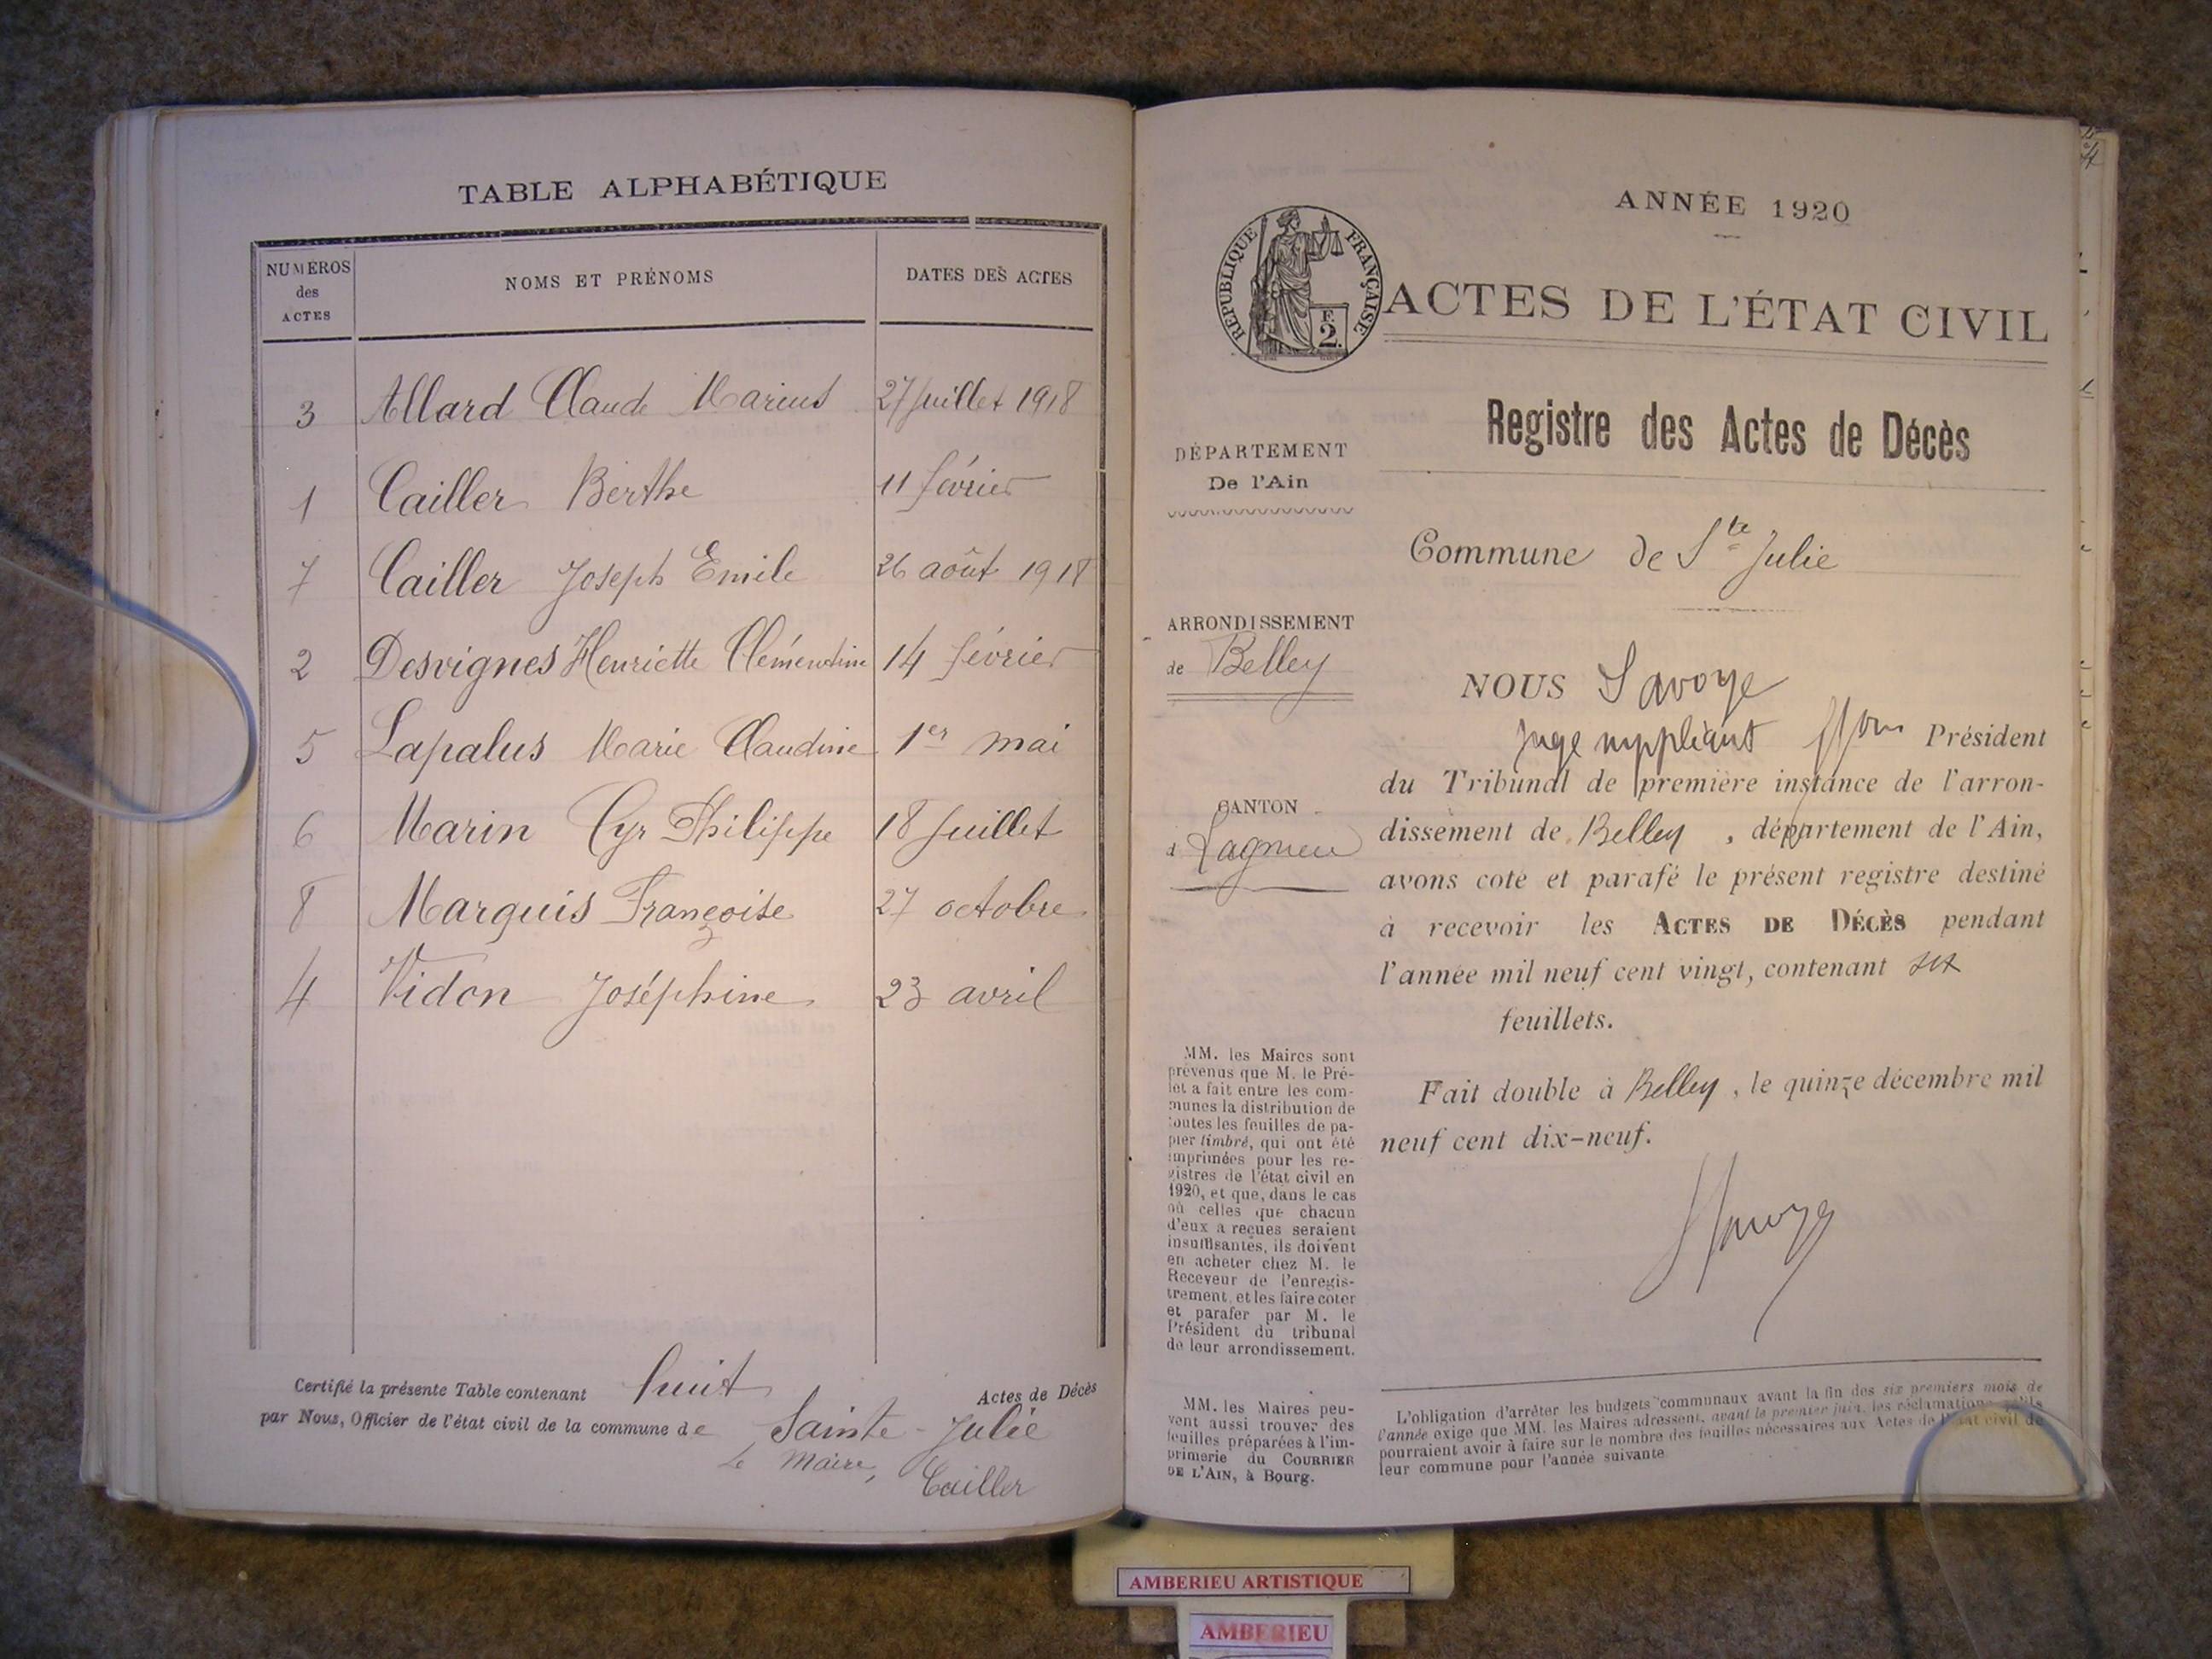 TABLE ALPHABÉTIQUE
NUMÉROS
des
ACTES
NOMS ET PRÉNOMS
DATES DES ACTES
3 Allard Claude Marius 27 Juillet 1918
1 Cailler Berthe 11 février
7 Cailler Joseph Emile 26 août 1918
2 Desvignes Henriette Clémentine 14 février
5 Lapalus Marie Claudine 1er mai
6 Marin Cyr Philippe 18 Juillet
8 Marquis Françoise 27 octobre
4 Vidon Joséphine 23 avril
Certifié la présente Table contenant huit Actes de Décès
par Nous, Officier de l'état civil de la commune de Sainte-Julie
Le Maire,
Cailler
ANNÉE 1920
RÉPUBLIQUE FRANÇAISE
F.
2.
ACTES DE L'ÉTAT CIVIL
Registre des Actes de Décès
DÉPARTEMENT
De l'Ain
Commune de Ste Julie
ARRONDISSEMENT
de Belley
CANTON
d Lagnieu
NOUS Savoye
Juge suppléant Président
du Tribunal de première instance de l'arron-
dissement de Belley, département de l'Ain,
avons coté et parafé le présent registre destiné
à recevoir les ACTES DE DÉCÈS pendant
l'année mil neuf cent vingt, contenant six
feuillets.
Fait double à Belley, le quinze décembre mil
neuf cent dix-neuf.
MM. les Maires sont
prévenus que M. le Pré-
fet a fait entre les com-
munes la distribution de
toutes les feuilles de pa-
pier timbré, qui ont été
imprimées pour les re-
gistres de l'état civil en
1920, et que, dans le cas
où celles que chacun
d'eux a reçues seraient
insuffisantes, ils doivent
en acheter chez M. le
Receveur de l'enregis-
trement, et les faire coter
et parafer par M. le
Président du tribunal
de leur arrondissement.
MM. les Maires peu-
vent aussi trouver des
feuilles préparées à l'im-
primerie du COURRIER
DE L'AIN, à Bourg.
L'obligation d'arrêter les budgets communaux avant la fin des six premiers mois de
l'année exige que MM. les Maires adressent, avant le premier juin, les réclamations qu'ils
pourraient avoir à faire sur le nombre des feuilles nécessaires aux Actes de l'état civil de
leur commune pour l'année suivante
AMBERIEU ARTISTIQUE
AMBERIEU